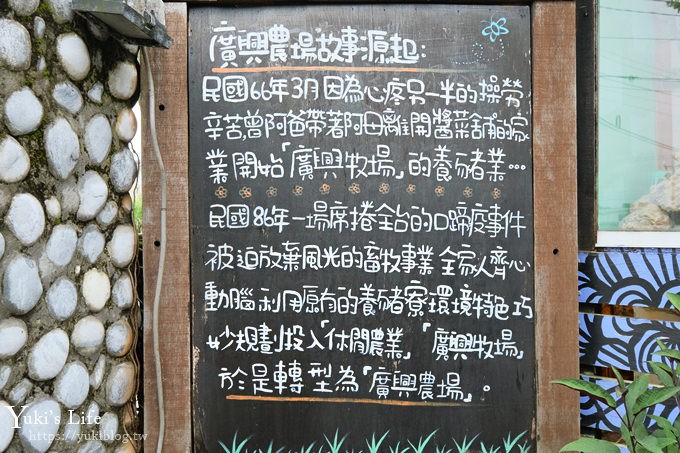 廣興農場故事源起:
民國66年3月因為心疼另一半的操勞
辛苦,曾阿爸帶著阿母離開醬菜舖的家
業開始「廣興牧場」的養豬業…
民國86年一場席捲全台的口蹄疫事件
被迫放棄風光的畜牧事業 全家人齊心
動腦 利用原有的養豬寮環境特色 巧
妙規劃投入「休閒農業」「廣興牧場」
於是轉型為「廣興農場」。
Yuki's Life
https://yukiblog.tw